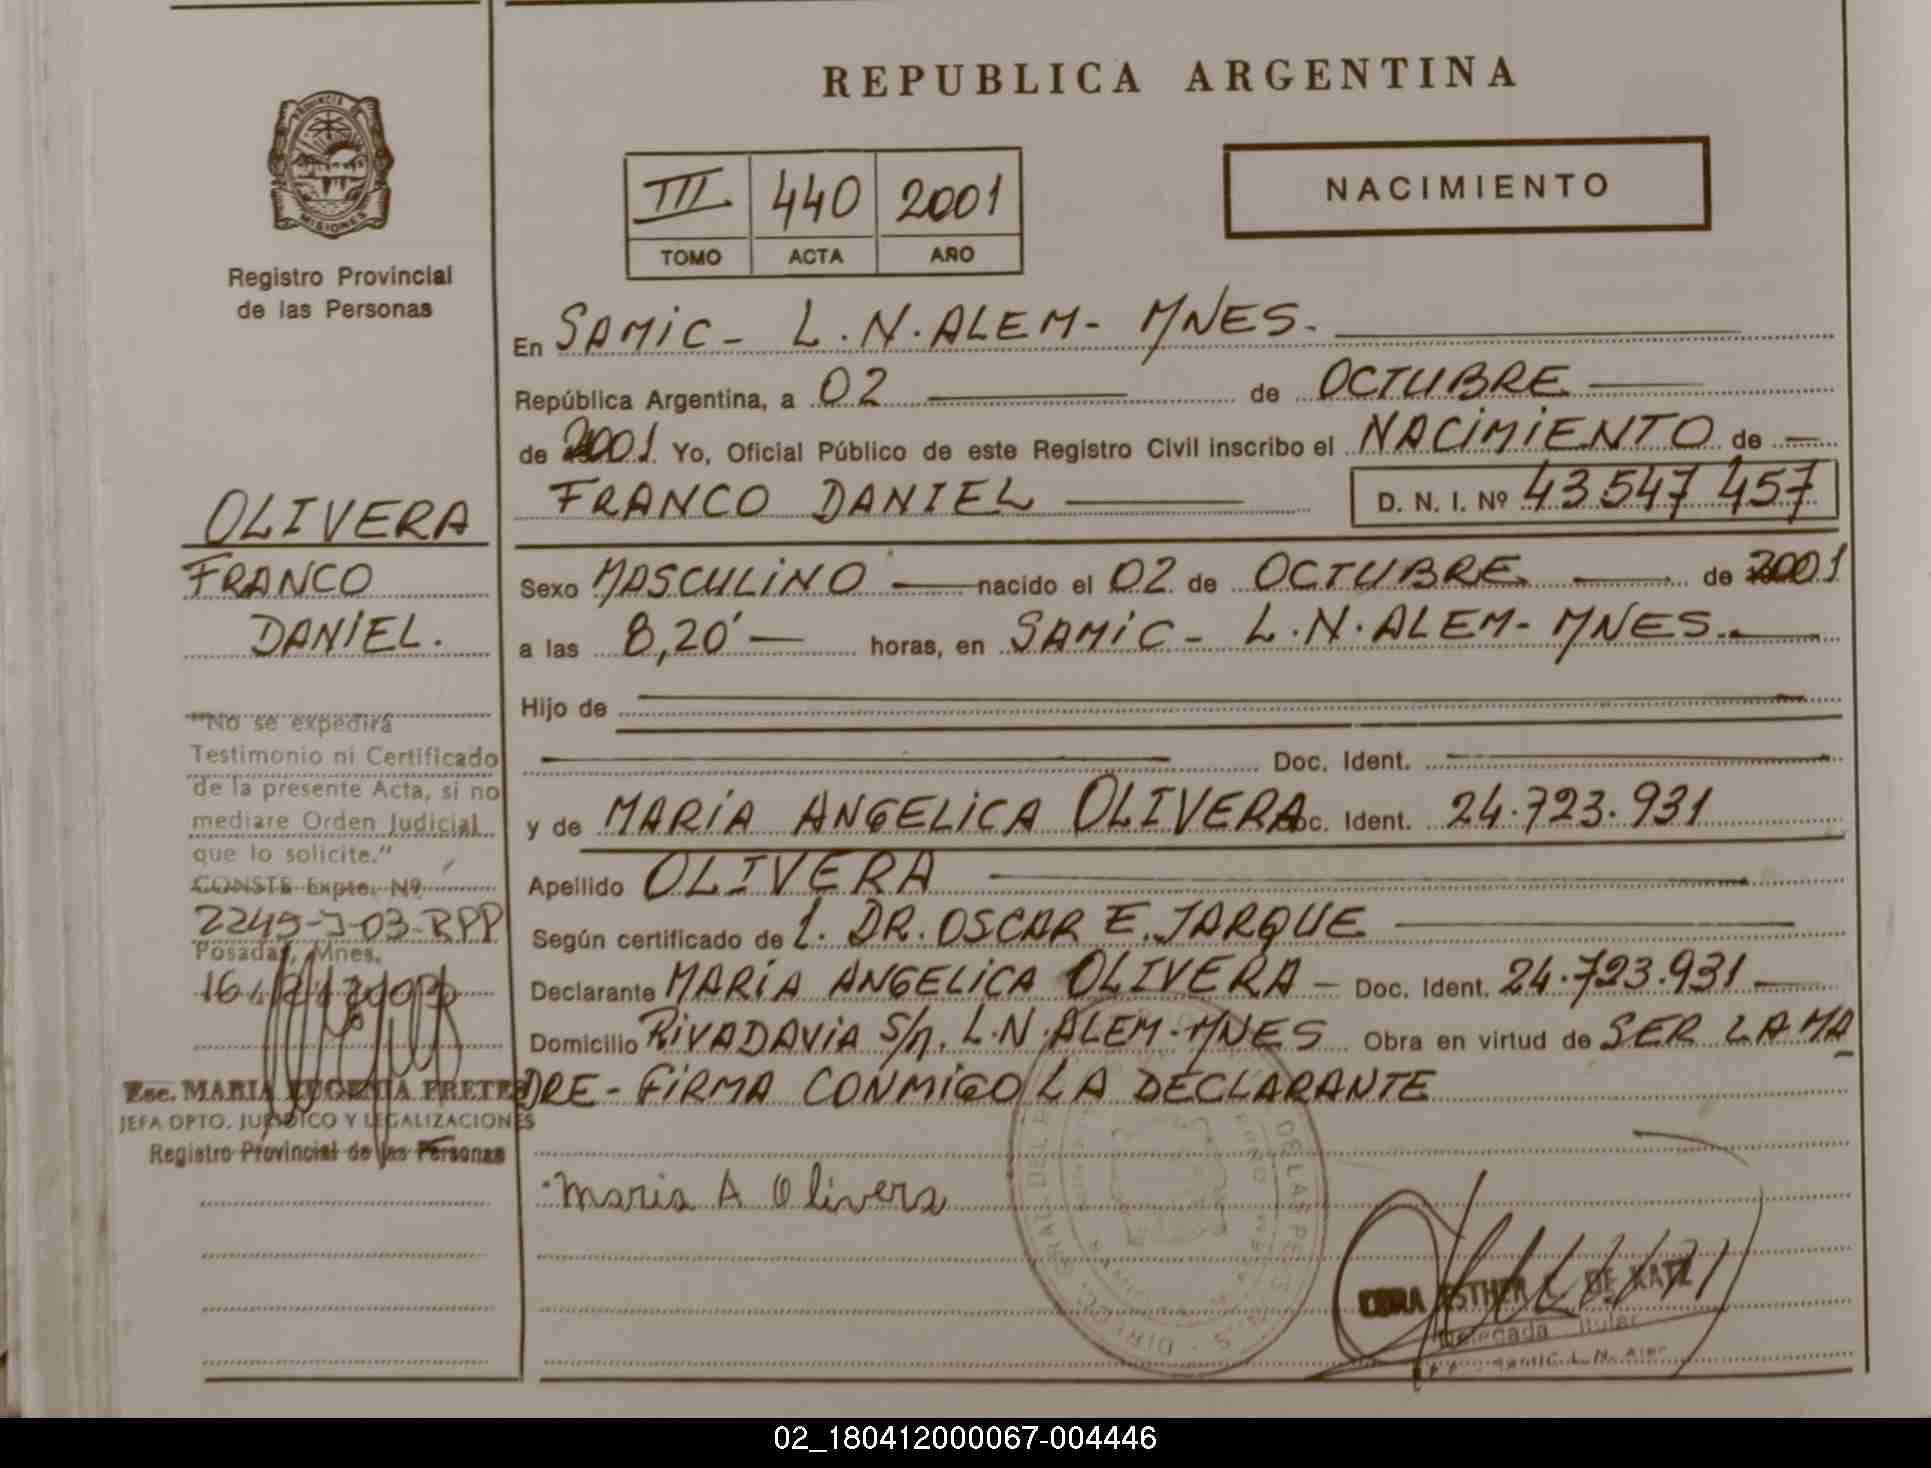 REPUBLICA ARGENTINA
PROVINCIA DE
MISIONES
Registro Provincial
de las Personas
III 440 2001
TOMO ACTA AÑO
NACIMIENTO
En SAMIC - L.N. ALEM - MNES.
República Argentina, a 02 de OCTUBRE
de 2001 Yo, Oficial Público de este Registro Civil inscribo el NACIMIENTO de
FRANCO DANIEL D. N. I. Nº 43.547 457
OLIVERA
FRANCO
DANIEL.
Sexo MASCULINO nacido el 02 de OCTUBRE de 2001
a las 8,20' horas, en SAMIC - L.N. ALEM - MNES.
Hijo de
Doc. Ident.
y de MARIA ANGELICA OLIVERA Doc. Ident. 24.723.931
Apellido OLIVERA
Según certificado de 1. DR. OSCAR E. JARQUE
Declarante MARIA ANGELICA OLIVERA - Doc. Ident. 24.723.931
Domicilio RIVADAVIA S/n. L.N. ALEM - MNES Obra en virtud de SER LA MA
DRE - FIRMA CONMIGO LA DECLARANTE
Maria A Olivera
"No se expedirá
Testimonio ni Certificado
de la presente Acta, si no
mediare Orden Judicial
que lo solicite."
CONSTE Expte. Nº
2249-J-03-RPP
Posadas, Mnes.
Esc. MARIA EUGENIA FRETES
JEFA DPTO. JURIDICO Y LEGALIZACIONES
Registro Provincial de las Personas
ESTHER DE KATZ
Delegada Titular
SAMIC L.N. Alem
02_180412000067-004446